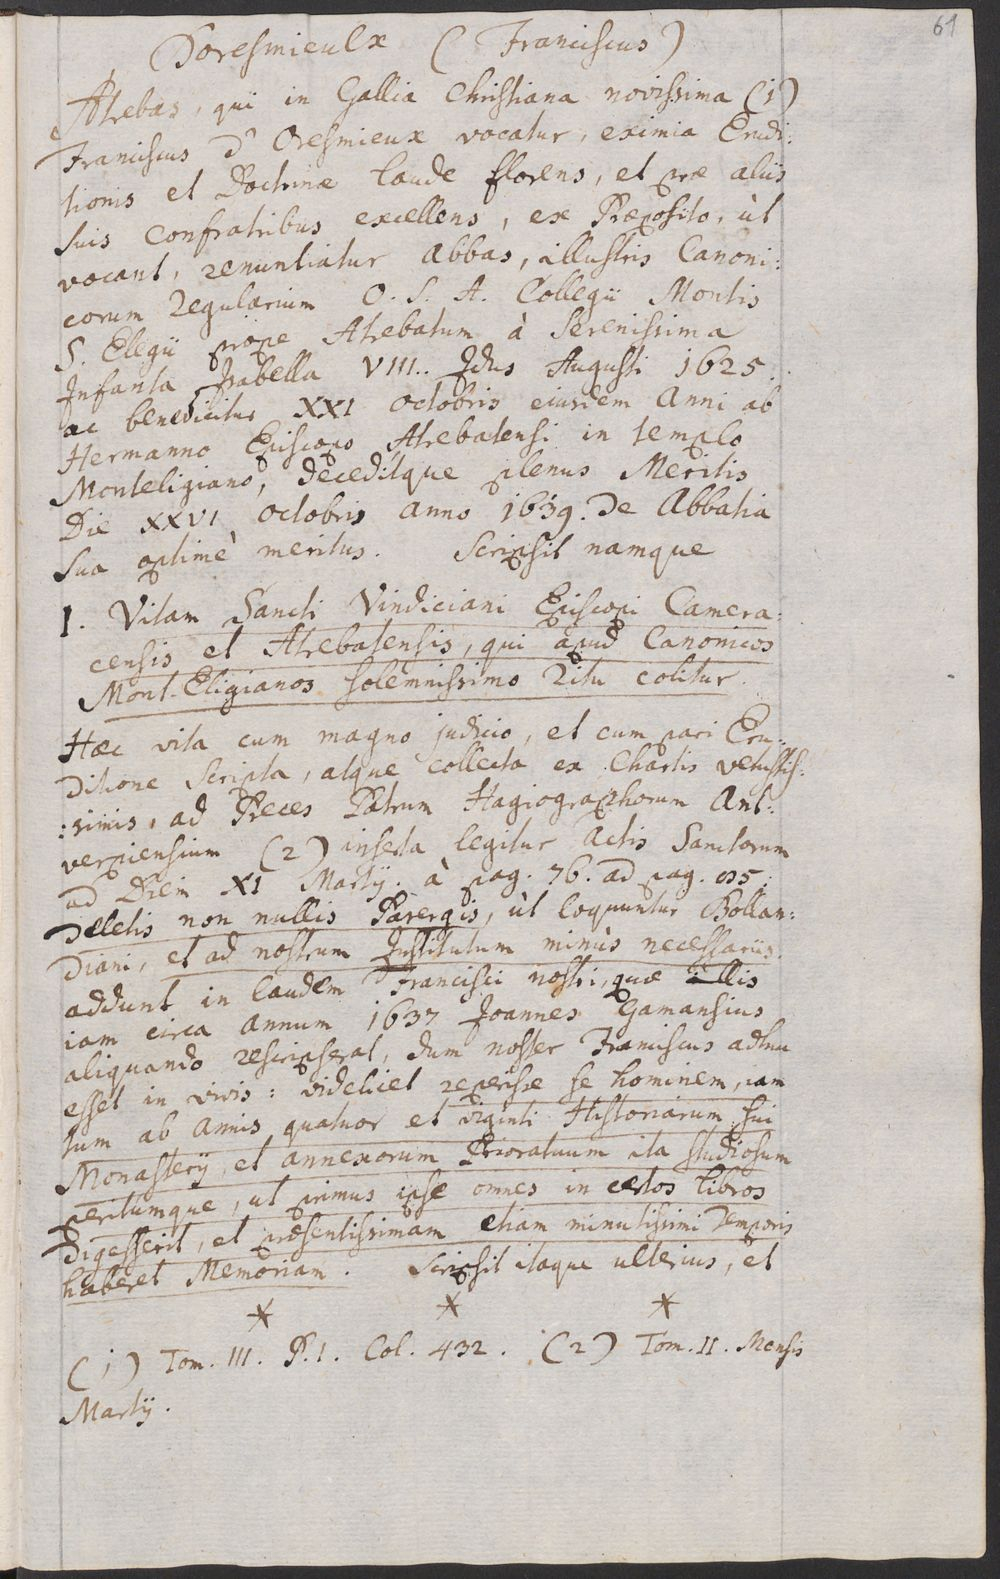 61
Doresmieulx ( Franciscus )
Atrebas, qui in Gallia Christiana novissima (1)
Franciscus d'Oresmieux vocatur, eximia Erudi:
tionis et Doctrinæ laude florens, et præ aliis
suis confratribus excellens, ex Præposito, ùt
vocant, renuntiatur Abbas, illustris Canoni:
corum Regularium O. S. A. Collegii Montis
S. Elegii prope Atrebatum à Serenissima
Infanta Isabella VIII.. Idus Augusti 1625.
ac benedicitur XXI octobris eiusdem Anni ab
Hermanno Episcopo Atrebatensi in templo
Monteligiano, deceditque plenus Meritis
Die XXVI octobris anno 1639. De Abbatia
sua optimè meritus. Scripsit namque
1. Vitam Sancti Vindiciani Episcopi Camera:
censis et Atrebatensis, qui apud Canonicos
Mont-Eligianos solemnissimo Ritu colitur.
Hæc vita cum magno judicio, et cum pari Eru:
ditione scripta, atque collecta ex Chartis vetustis:
:simis, ad Preces Patrum Hagiographorum Ant:
verpiensium (2) inserta legitur Actis Sanctorum
ad Diem XI Martij. à pag. 76. ad pag.
deletis non nullis Parergis, ùt loquuntur Bollan:
diani, et ad nostrum Institutum minùs necessariis.
addunt in laudem Francisci nostri, quæ illis
iam circa annum 1637 Joannes Gamansius
aliquando rescripserat, dum noster Franciscus adhuc
esset in vivis: videlicet reperisse se hominem, iam
tum ab annis quatuor et viginti Historiarum sui
Monasterij, et annexorum Prioratuum ita studiosum
peritumque, ut primus ipse omnes in certos libros
digesserit, et præsentissimam etiam minutissimi temporis
haberet Memoriam. Scripsit itaque ulterius, et
* * *
(1) Tom. III. P. I. Col. 432. (2) Tom. II. Mensis
Martij.